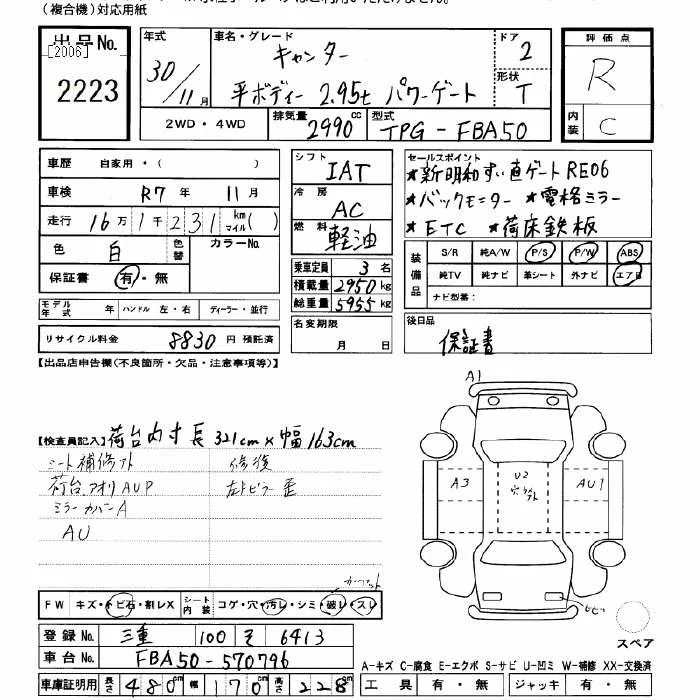 (複合機)対応用紙
出品No.
[2006]
2223
年式 車名・グレード ドア
30/11月 キャンター 2
平ボディー 2.95t パワーゲート 形状 T
2WD・4WD 排気量 2990cc 型式 TPG-FBA50
評価点
R
内装 C
車歴 自家用・( )
車検 R7年 11月
走行 16万1千231km マイル( )
色 白 色替 カラーNo.
保証書 有・無
モデル年式 年 ハンドル 左・右 ディーラー・並行
リサイクル料金 8830円 預託済
シフト IAT
冷房 AC
燃料 軽油
乗車定員 3名
積載量 2950kg
総重量 5955kg
名変期限
月 日
セールスポイント
★新明和すい直ゲートRE06
★バックモニター ★電格ミラー
★ETC ★荷床鉄板
装備品 S/R 純A/W P/S P/W ABS
純TV 純ナビ 革シート 外ナビ エアB
ナビ型番:
後日品
保証書
【出品店申告欄(不良箇所・欠品・注意事項等)】
【検査員記入】荷台内寸長321cm×幅163cm
シート補修アト 修復
荷台、アオリAUP 左トビラー歪
ミラーカバーA
AU
A1
A3
U2
AU1
サビ
スペア
FW キズ・トビ石・割レX シート内装 コゲ・穴・汚レ・シミ・破レ・スレ
登録No. 三重 100 そ 6413
車台No. FBA50-570796
車庫証明用 長さ 480cm 幅 170cm 高さ 228cm
A-キズ C-腐食 E-エクボ S-サビ U-凹ミ W-補修 XX-交換済
工具 有・無 ジャッキ 有・無